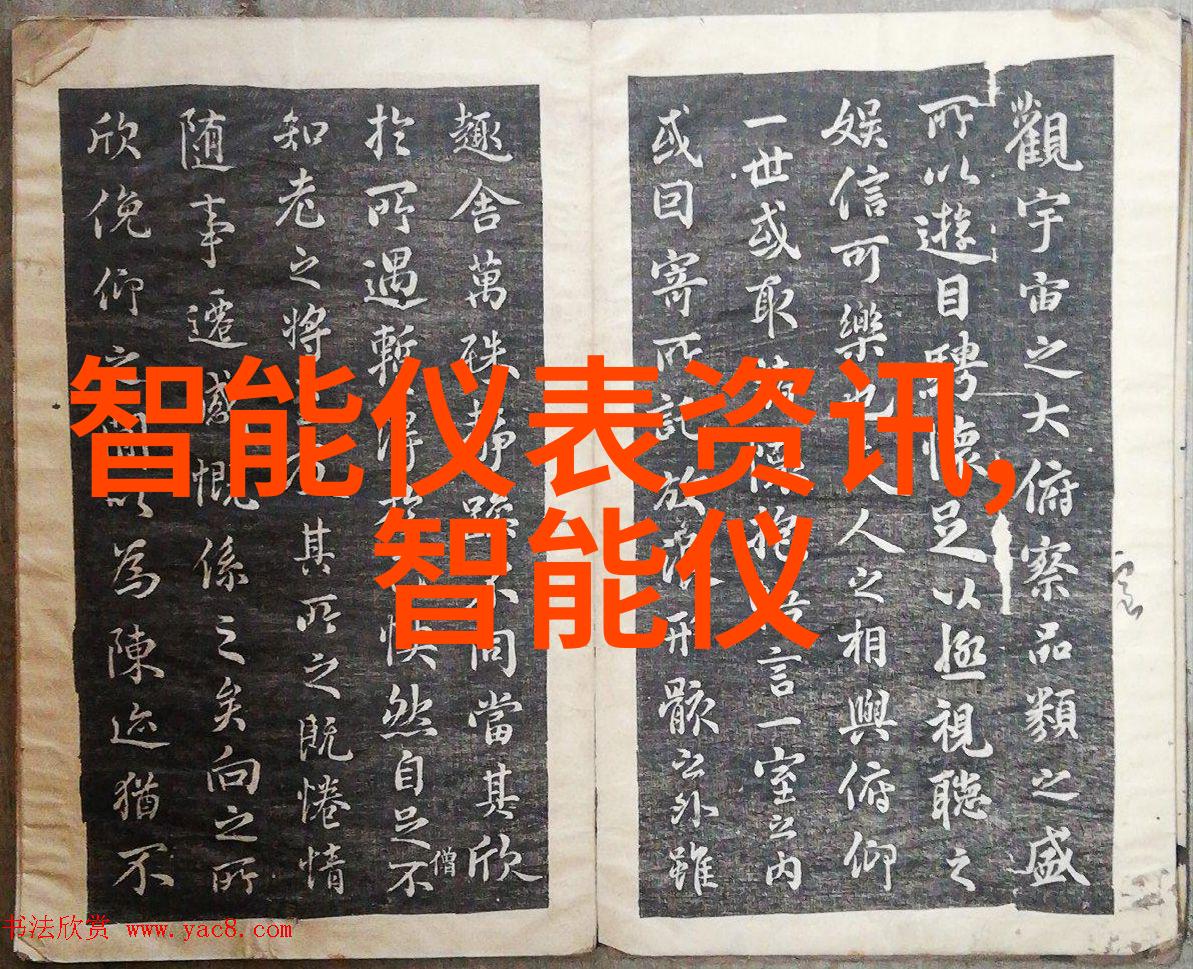 觀宇宙之大俯察品類之盛
所以遊目騁懷足以極視聽之
娛信可樂也人之相與俯仰
一世或取諸懷抱言一室之內
或因寄所託放浪形骸之外雖
趣舍萬殊靜躁不同當其欣
於所遇暫得快然自足不
僧
知老之將其所之既惓情
随事遷感慨係之矣向之所
欣俛仰之間以為陳迹猶不
智能仪表资讯,
智能仪
书法欣赏 www.yac8.com